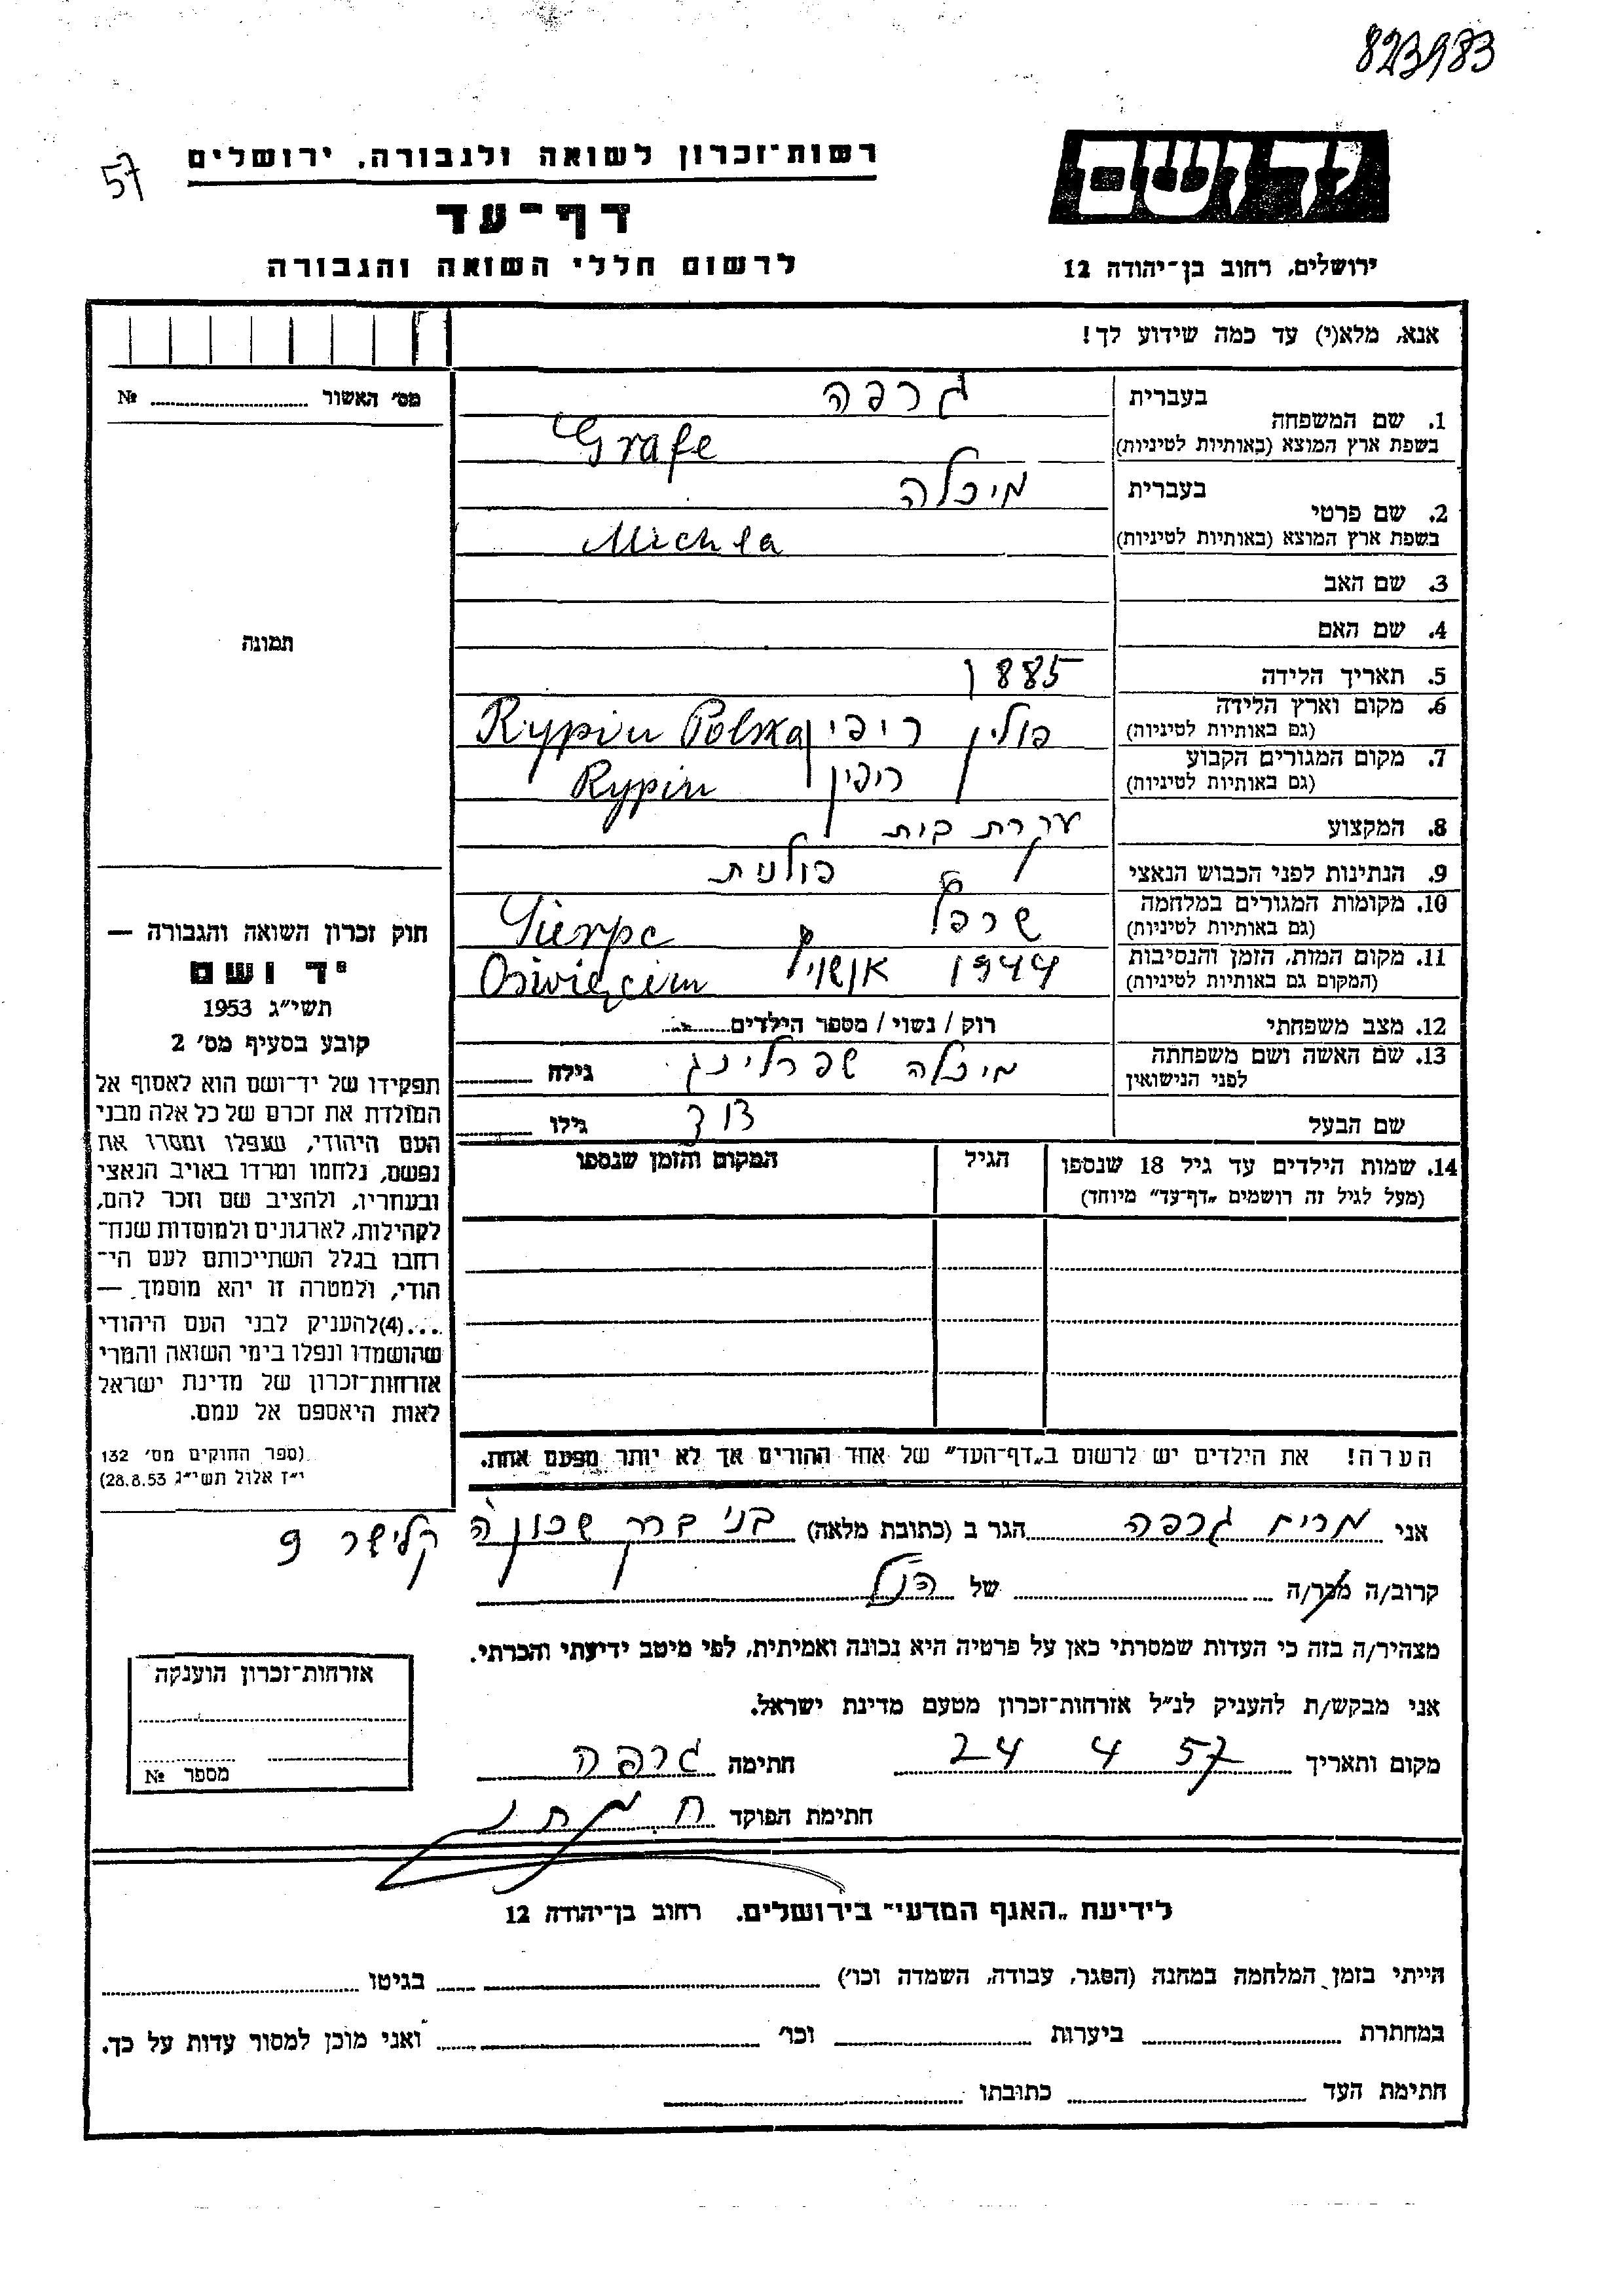 823983
57
רשות־זכרון לשואה ולגבורה, ירושלים
יד ושם
דף־עד
לרשום חללי השואה והגבורה
ירושלים, רחוב בן־יהודה 12
אנא, מלא(י) עד כמה שידוע לך!
מס׳ האשור № 
בעברית גרפה
1. שם המשפחה
בשפת ארץ המוצא (באותיות לטיניות) Grafe
בעברית מיכלה
2. שם פרטי
בשפת ארץ המוצא (באותיות לטיניות) Michla
3. שם האב
4. שם האם
תמונה
5. תאריך הלידה 1885
6. מקום וארץ הלידה
(גם באותיות לטיניות) פולין ריפין Rypin Polska
7. מקום המגורים הקבוע
(גם באותיות לטיניות) ריפין Rypin
8. המקצוע עקרת בית
9. הנתינות לפני הכבוש הנאצי פולנית
10. מקומות המגורים במלחמה
(גם באותיות לטיניות) Sierpc
11. מקום המות, הזמן והנסיבות
(המקום גם באותיות לטיניות) 1944 Oświęcim
12. מצב משפחתי רוק / נשוי / מספר הילדים
13. שם האשה ושם משפחתה
לפני הנישואין מיכלה שפרלינג גילה
שם הבעל דוד גילו
14. שמות הילדים עד גיל 18 שנספו
(מעל לגיל זה רושמים „דף־עד״ מיוחד)
הגיל
המקום והזמן שנספו
חוק זכרון השואה והגבורה —
יד ושם
תשי״ג 1953
קובע בסעיף מס׳ 2
תפקידו של יד־ושם הוא לאסוף אל
המולדת את זכרם של כל אלה מבני
העם היהודי, שנפלו ומסרו את
נפשם, נלחמו ומרדו באויב הנאצי
ובעוזריו, ולהציב שם וזכר להם,
לקהילות, לארגונים ולמוסדות שנח־
רבו בגלל השתייכותם לעם הי־
הודי, ולמטרה זו יהא מוסמך —
...(4)להעניק לבני העם היהודי
שהושמדו ונפלו בימי השואה והמרי
אזרחות־זכרון של מדינת ישראל
לאות היאספם אל עמם.
(ספר החוקים מס׳ 132
י״ז אלול תשי״ג 28.8.53)
הערה! את הילדים יש לרשום ב„דף־העד״ של אחד ההורים אך לא יותר מפעם אחת.
אני מרים גרפה הגר ב (כתובת מלאה) בני ברק שכונה קלישר 9
קרוב/ה מכר/ה של הנ״ל
מצהיר/ה בזה כי העדות שמסרתי כאן על פרטיה היא נכונה ואמיתית, לפי מיטב ידיעתי והכרתי.
אני מבקש/ת להעניק לנ״ל אזרחות־זכרון מטעם מדינת ישראל.
מקום ותאריך 24 4 57 חתימה גרפה
חתימת הפוקד
אזרחות־זכרון הוענקה
מספר №
לידיעת „האגף המדעי״ בירושלים, רחוב בן־יהודה 12
הייתי בזמן המלחמה במחנה (הסגר, עבודה, השמדה וכו׳) בגיטו
במחתרת ביערות וכו׳ ואני מוכן למסור עדות על כך.
חתימת העד כתובתו